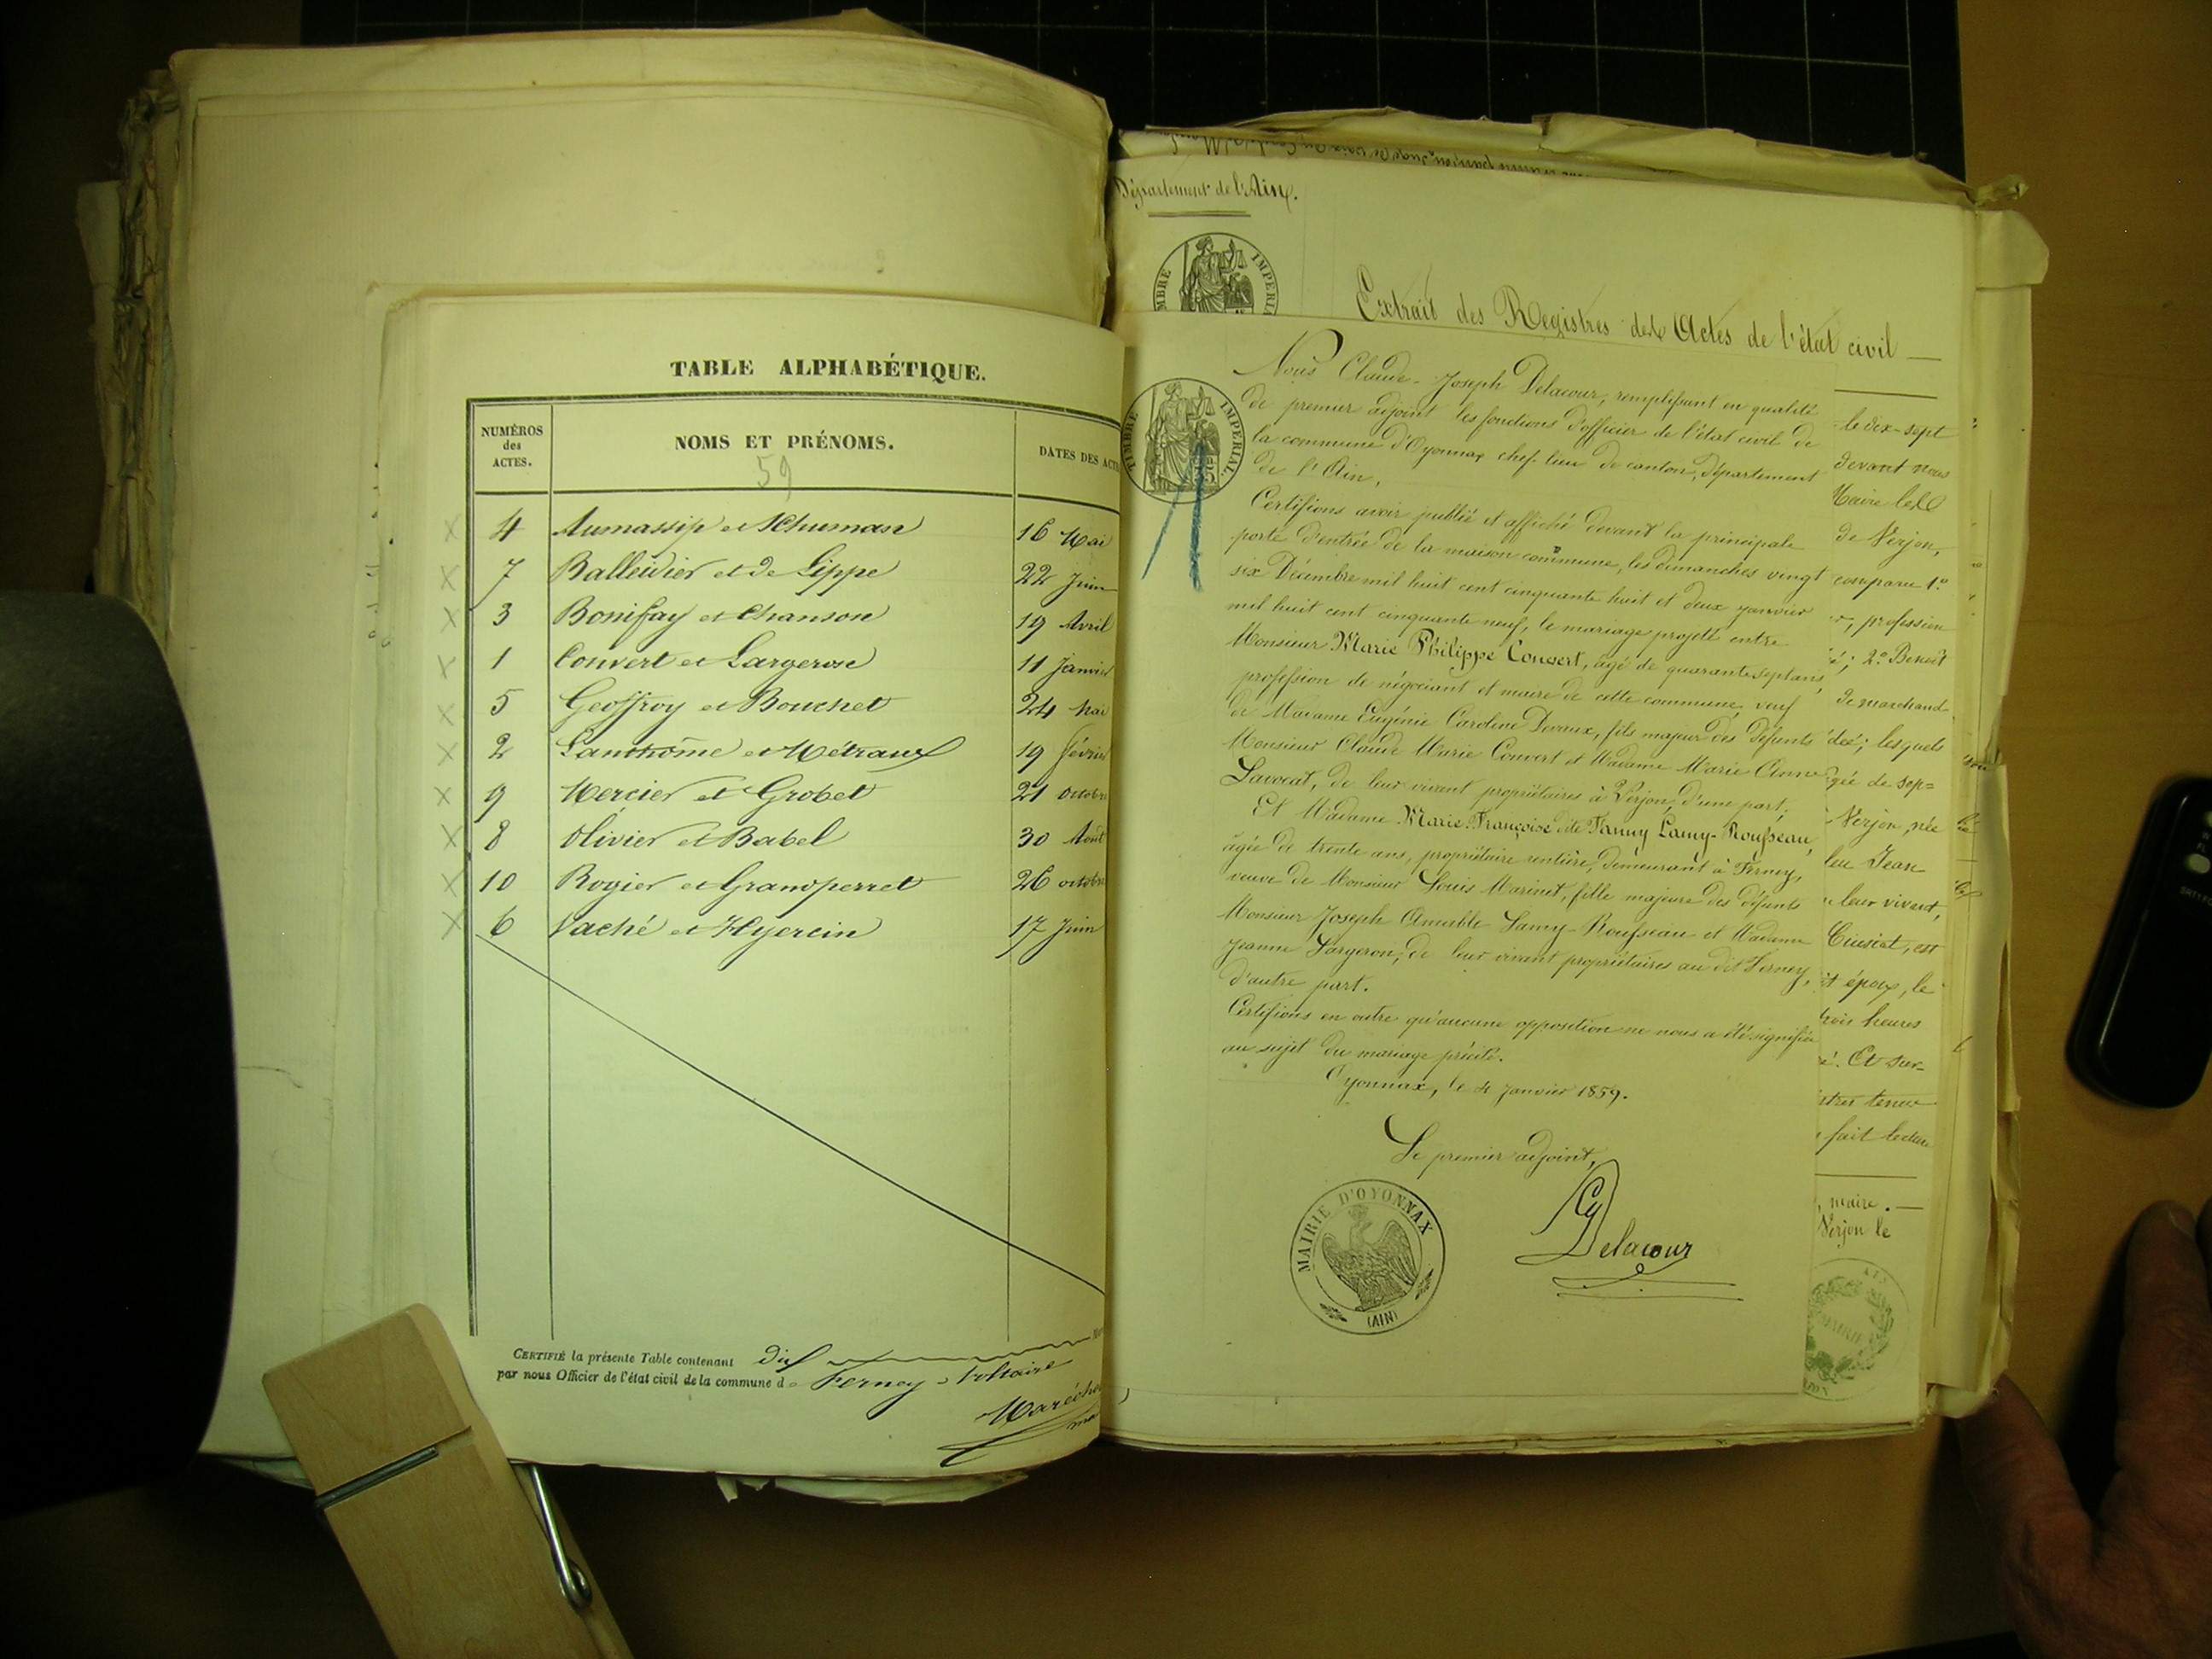 TABLE ALPHABÉTIQUE.
NUMÉROS des ACTES.
NOMS ET PRÉNOMS.
DATES DES ACT
59
4 Aumassip et Schuman 16 Mai
7 Balleidier et de Lippe 22 Juin
3 Bonifay et Chanson 19 Avril
1 Convert et Largeron 11 Janvier
5 Geoffroy et Bouchet 24 Mai
2 Lanthôme et Métraux 19 février
9 Mercier et Grobet 21 Octobre
8 Olivier et Babel 30 Août
10 Rogier et Grandperret 26 octobre
6 Vaché et Hyercin 17 Juin
CERTIFIÉ la présente Table contenant dix
par nous Officier de l'état civil de la commune de Ferney-Voltaire
Département de l'Ain.
MBRE IMPERI
Extrait des Registres des Actes de l'état civil
TIMBRE IMPERIAL
Nous Claude-Joseph Delacour, remplissant en qualité
de premier adjoint les fonctions d'officier de l'état civil de
la commune d'Oyonnax chef-lieu de canton, département
de l'Ain,
Certifions avoir publié et affiché devant la principale
porte d'entrée de la maison commune, les dimanches vingt
six Décembre mil huit cent cinquante huit et deux janvier
mil huit cent cinquante neuf, le mariage projetté entre
Monsieur Marie Philippe Convert, âgé de quarante sept ans,
profession de négociant et maire de cette commune, veuf
de Madame Eugénie Caroline Devaux, fils majeur des défunts
Monsieur Claude Marie Convert et Madame Marie Anne
Lavocat, de leur vivant propriétaires à Verjon, d'une part;
Et Madame Marie-Françoise dite Fanny Lamy-Rousseau,
âgée de trente ans, propriétaire rentière, demeurant à Ferney,
veuve de Monsieur Louis Marinet, fille majeure des défunts
Monsieur Joseph Amable Lamy-Rousseau et Madame
Jeanne Largeron, de leur vivant propriétaires au dit Ferney,
d'autre part.
Certifions en outre qu'aucune opposition ne nous a été signifiée
au sujet du mariage précité.
Oyonnax, le 4 janvier 1859.
Le premier adjoint,
Delacour
MAIRIE D'OYONNAX
(AIN)
le dix-sept
devant nous
Maire
de Verjon,
comparu 1°
profession
2° Benoît
de marchand
lesquels
gée de sep=
Verjon, née
feu Jean
leur vivant,
Cuisiat, est
époux, le
trois heures
Et sur
tenue
fait lecture
maire.
Verjon le